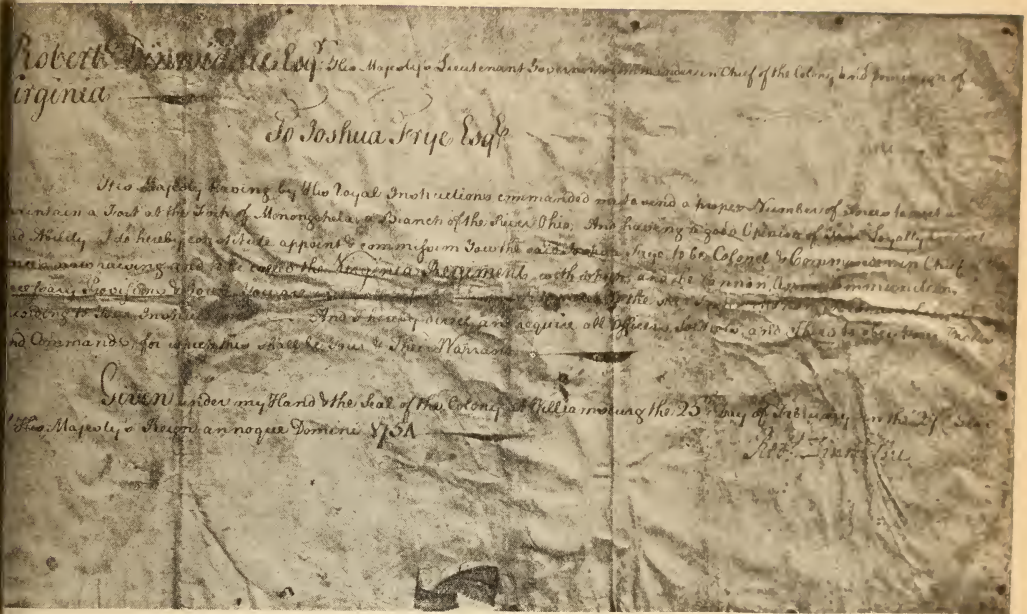 Robert Dinwiddie Esqr. His Majesty's Lieutenant Governor & Commander in Chief of the Colony and Dominion of
irginia
To Joshua Frye Esqr.
His Majesty having by His Royal Instructions commanded me to send a proper Number of Forces to
maintain a Fort at the Fork of Monongehela, a Branch of the River Ohio; And having a good Opinion of Your Loyalty
nd Ability I do hereby constitute appoint & commission You the said Joshua Frye to be Colonel & Commander in Chief
now raising and to be called the Virginia Regiment, with which and the Cannon, Arms Ammunition,
necessary Provisions You are the
cording to Your Instructions And I hereby direct and require all Officers Soldiers, and others to obey Your Orders
nd Commands, for which this shall be Your & Their Warrant
Given under my Hand & the Seal of the Colony at Williamsburg the 25th Day of February in the 27
His Majesty's Reign annoque Domini 1754
Robt. Dinwiddie